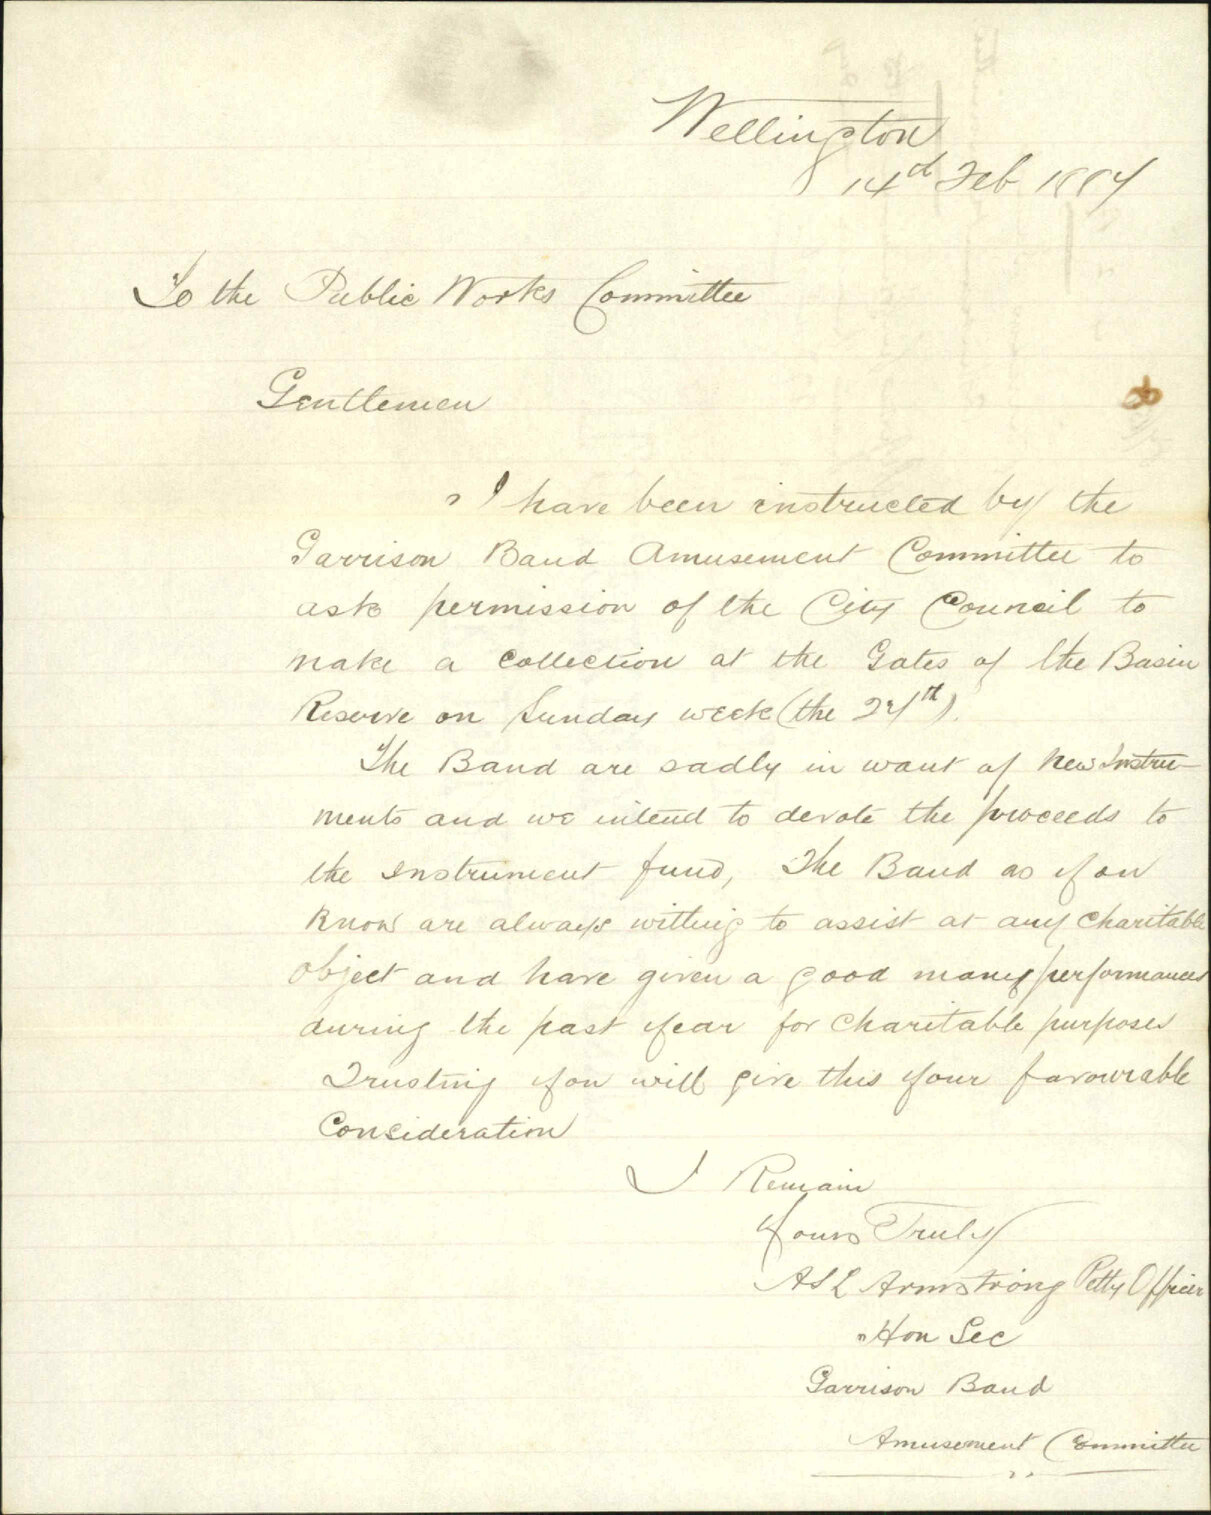 Wellington
14th Feb 1884
To the Public Works Committee
Gentlemen
I have been instructed by the
Garrison Band Amusement Committee to
ask permission of the City Council to
make a Collection at the Gates of the Basin
Reserve on Sunday week (the 24th).
The Band are sadly in want of New Instru-
ments and we intend to devote the proceeds to
the Instrument fund, The Band as you
Know are always willing to assist at any Charitable
object and have given a good many performances
during the past year for Charitable purposes
Trusting you will give this your favourable
Consideration
I Remain
Yours Truly
A S L Armstrong Petty Officer
Hon Sec
Garrison Band
Amusement Committee